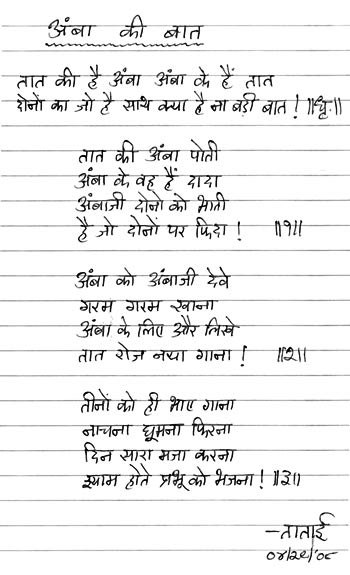 अंबा की बात
तात की है अंबा अंबा के हैं तात
दोनों का जो है साथ क्या है ना बडी बात ! ॥धृ॥
तात की अंबा पोती
अंबा के वह हैं दादा
अंबाजी दोनों को भाती
है जो दोनों पर फिदा ! ॥१॥
अंबा को अंबाजी देवे
गरम गरम खाना
अंबा के लिए और लिखे
तात रोज नया गाना ! ॥२॥
तीनों को ही भाए गाना
नाचना घूमना फिरना
दिन सारा मजा करना
श्याम होते प्रभू को भजना ! ॥३॥
—ताताई